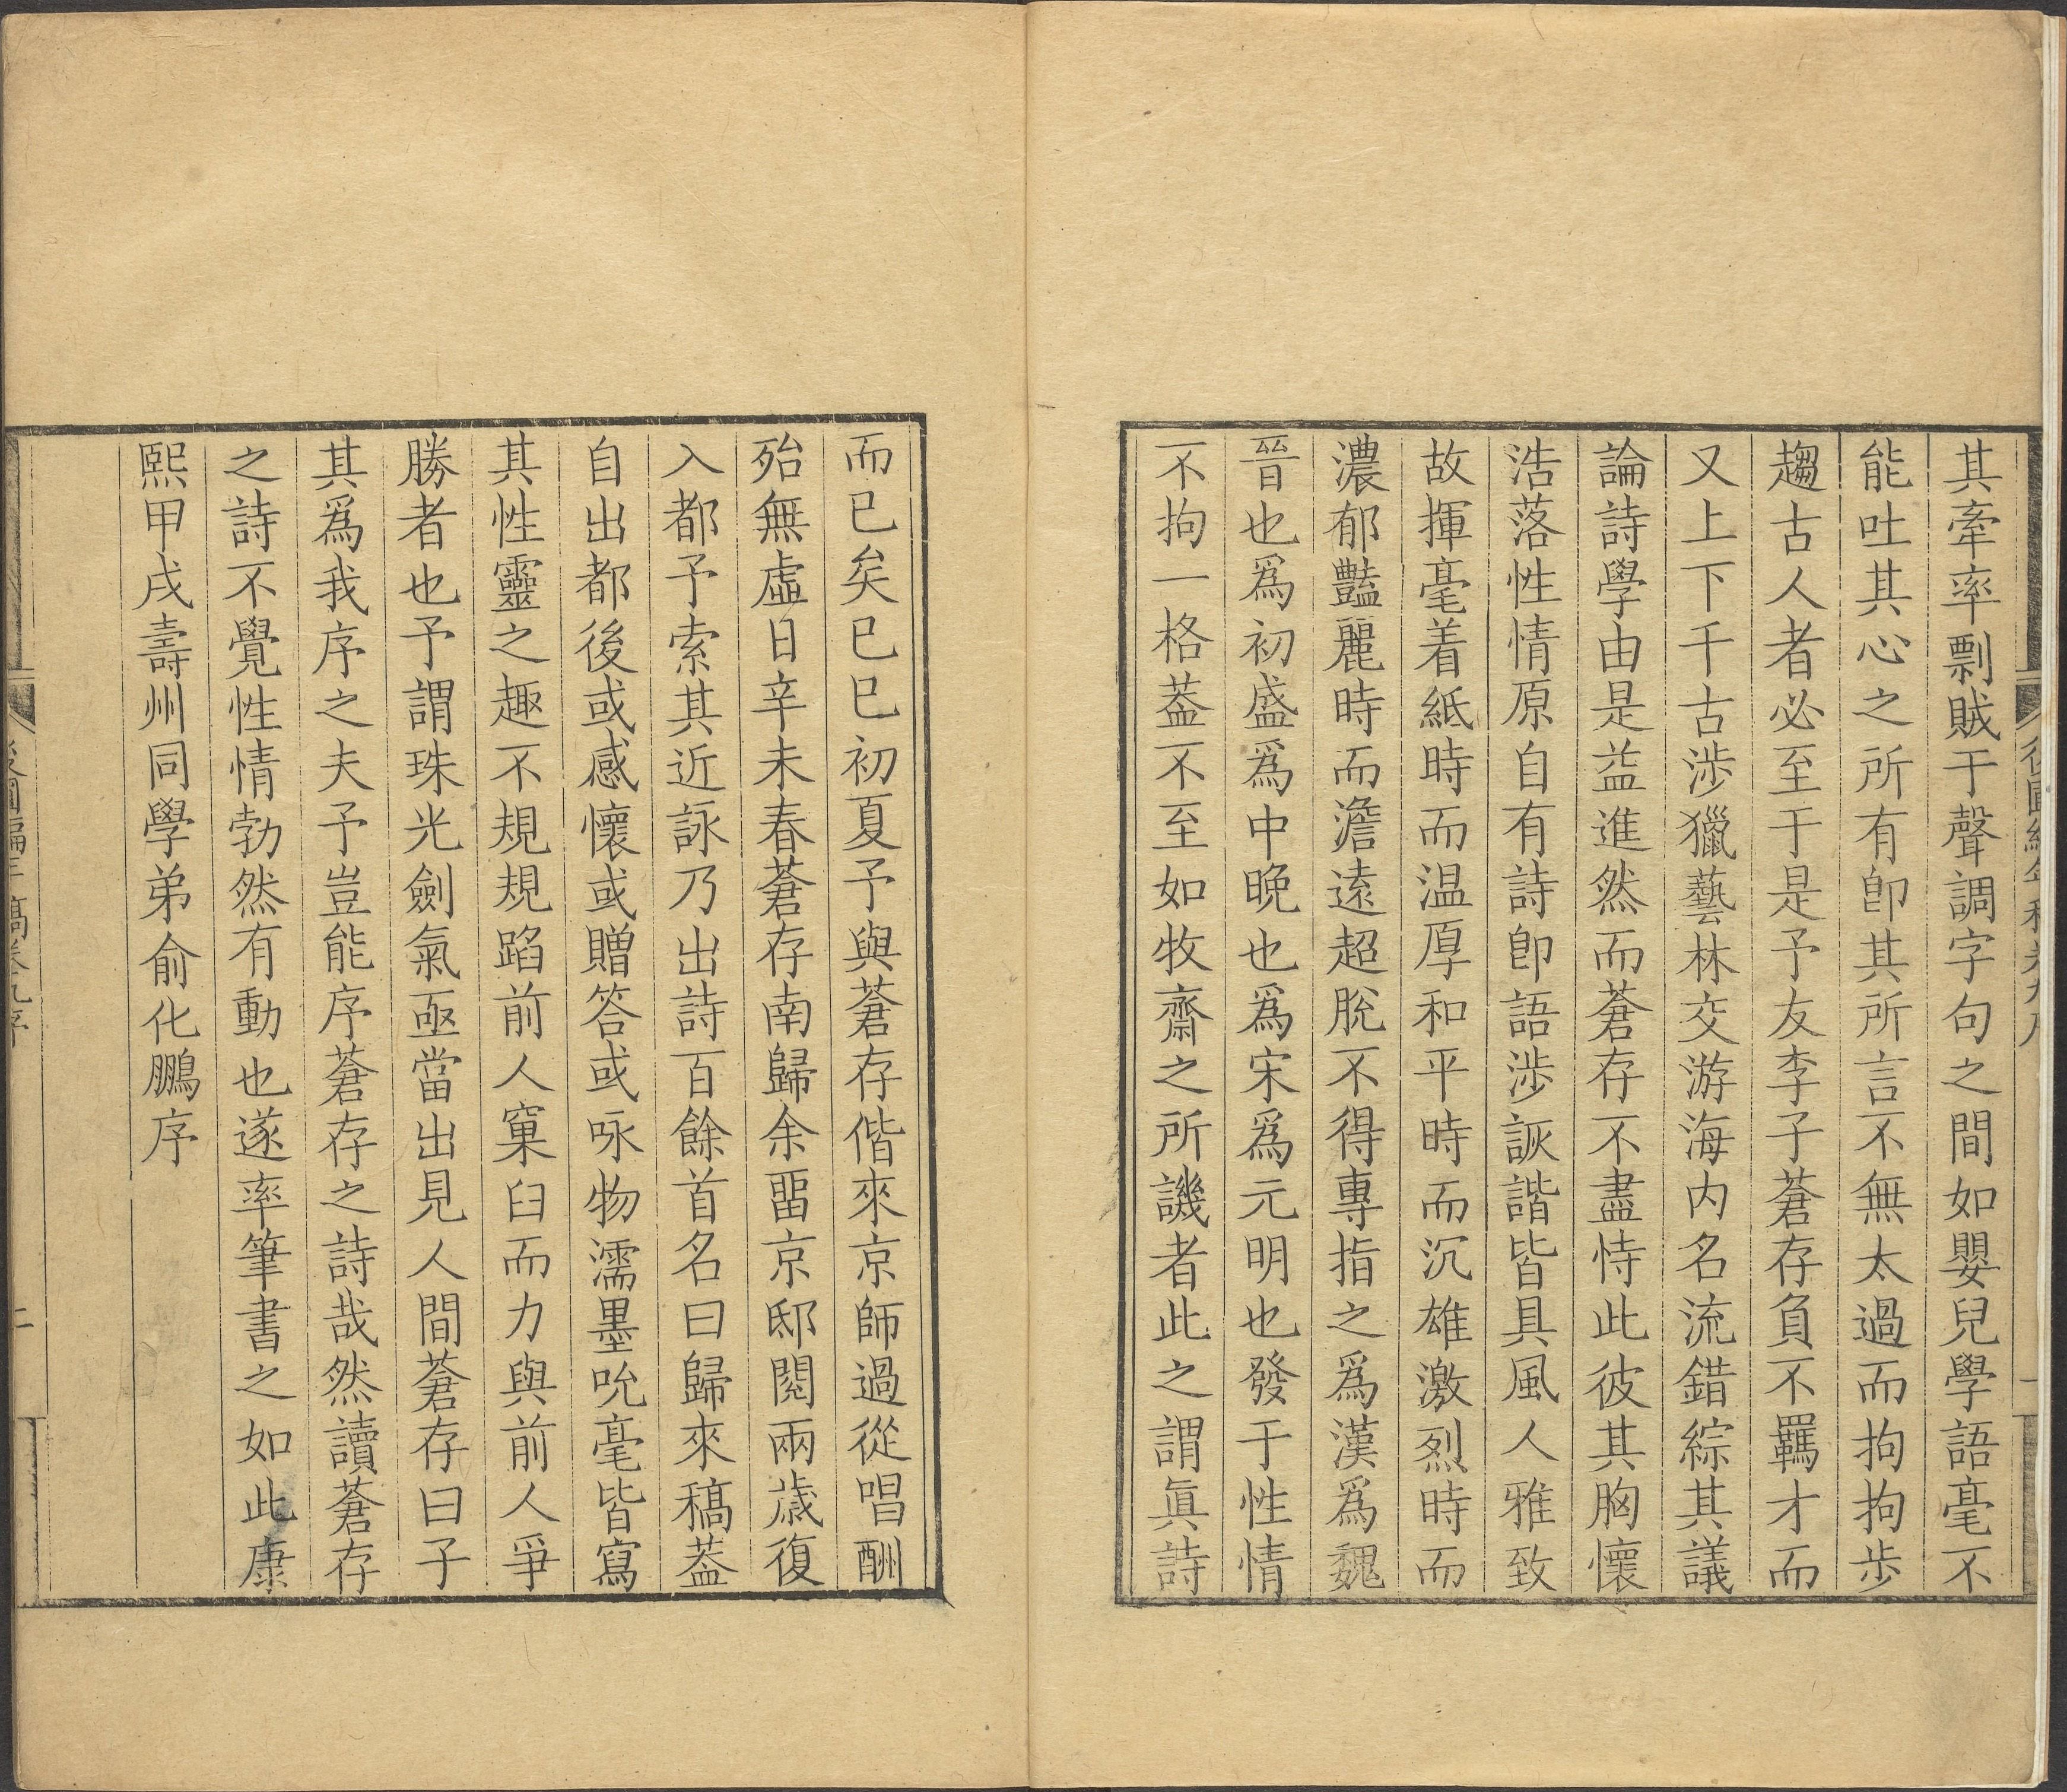 其牽率剽賊于聲調字句之間如嬰兒學語毫不
能吐其心之所有卽其所言不無太過而拘拘步
趨古人者必至于是予友李子蒼存負不羈才而
又上下千古涉獵藝林交游海内名流錯綜其議
論詩學由是益進然而蒼存不盡恃此彼其胸懷
浩落性情原自有詩卽語涉詼諧皆具風人雅致
故揮毫着紙時而温厚和平時而沉雄激烈時而
濃郁豔麗時而澹遠超脫不得專指之爲漢爲魏
晉也爲初盛爲中晚也爲宋爲元明也發于性情
不拘一格葢不至如牧齋之所譏者此之謂眞詩
而已矣己巳初夏予與蒼存偕來京師過從唱酬
殆無虛日辛未春蒼存南歸余畱京邸閱兩歲復
入都予索其近詠乃出詩百餘首名曰歸來稿葢
自出都後或感懷或贈答或咏物濡墨吮毫皆寫
其性靈之趣不規規蹈前人窠臼而力與前人爭
勝者也予謂珠光劍氣亟當出見人間蒼存曰子
其爲我序之夫予豈能序蒼存之詩哉然讀蒼存
之詩不覺性情勃然有動也遂率筆書之如此康
熙甲戌壽州同學弟俞化鵬序